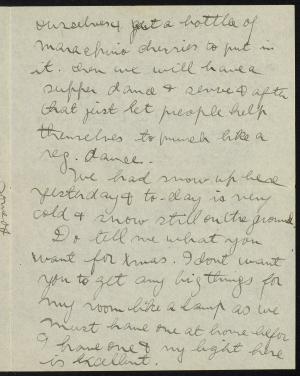 ourselves & get a bottle of
marachino cherries to put in
it. Then we will have a
supper dance & serve & after
that just let preople help
themselves to punch like a
reg. dance.
We had snow up here
yesterday & to-day is very
cold & snow still on the ground
Do tell me what you
want for Xmas. I dont want
you to get any big things for
my room like a lamp as we
must have one at home befor
I have one & my light here
is excellent.